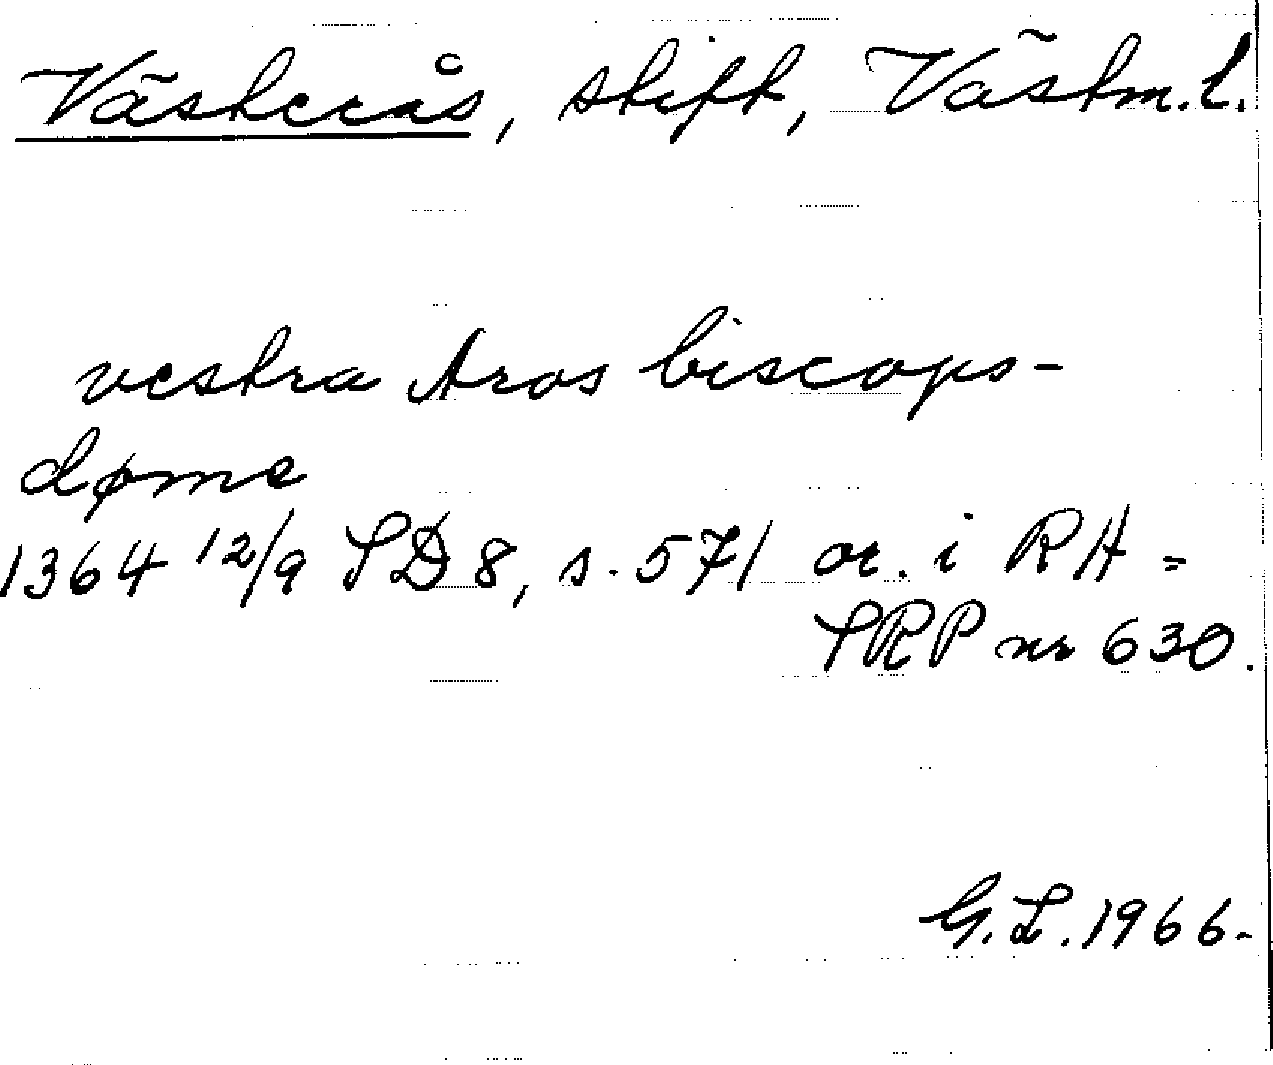 Västerås, stift, Västm.l.
vestra Aros biscops-
dømе
1364 12/9 SD 8, s. 571 or. i RA =
SRP nr 630.
G.L. 1966.